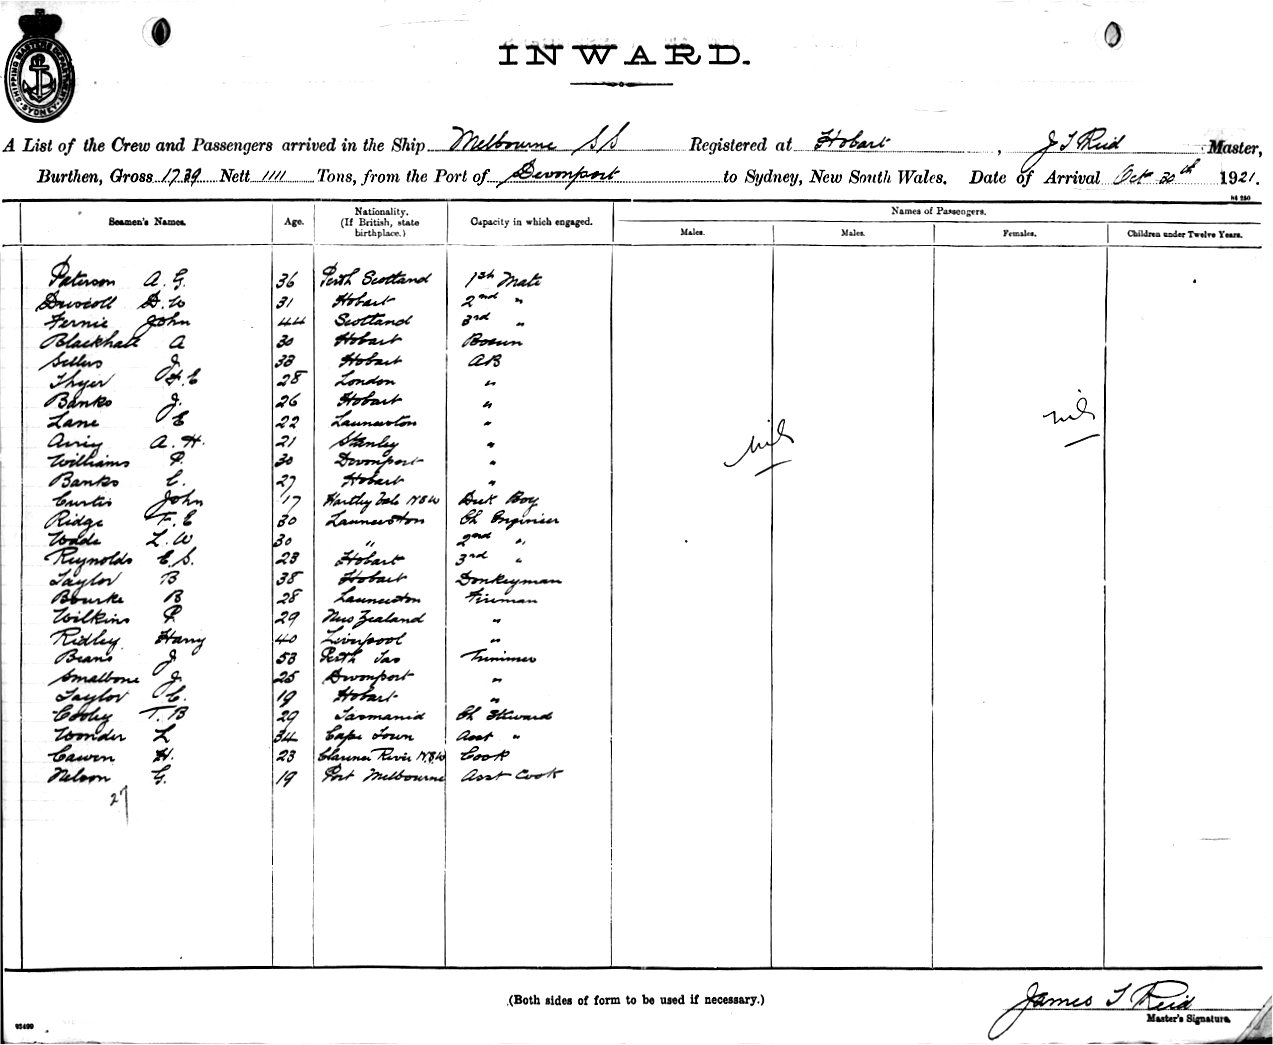 SHIPPING MASTER'S DEPARTMENT SYDNEY
INWARD.
A List of the Crew and Passengers arrived in the Ship Melbourne SS Registered at Hobart, J T Reid Master,
Burthen, Gross 1739 Nett 1111 Tons, from the Port of Devonport to Sydney, New South Wales. Date of Arrival Oct 30th 1921.
Seamen's Names. Age. Nationality. (If British, state birthplace.) Capacity in which engaged. Names of Passengers.
Males. Males. Females. Children under Twelve Years.
Paterson A. G. 36 Perth Scotland 1st Mate
Driscoll D. W 31 Hobart 2nd "
Fernie John 44 Scotland 3rd "
Blackhall A 30 Hobart Bosun
Sellers J. 33 Hobart AB
Thyer H. E 28 London "
Banks J. 26 Hobart "
Lane E 22 Launceston "
A. H. 21 Stanley "
Williams P. 30 Devonport "
Banks C. 27 Hobart "
Curtis John 17 Hartley Vale NSW Deck Boy
Ridge F. E 30 Launceston Ch Engineer
Wade L. W 30 " 2nd "
Reynolds E. S. 23 Hobart 3rd "
Taylor B 38 Hobart Donkeyman
Bourke B 28 Launceston Fireman
Wilkins P. 29 New Zealand "
Ridley Harry 40 Liverpool "
Beans J 53 Perth Tas Trimmer
Smalbone J. 25 Devonport "
Taylor C. 19 Hobart "
Cooley T. B 29 Tasmania Ch Steward
Wonder L 34 Cape Town Asst "
Cawen H. 23 Clarence River NSW Cook
Nelson G. 19 Port Melbourne Asst Cook
27
nil
nil
(Both sides of form to be used if necessary.)
James T Reid
Master's Signature.